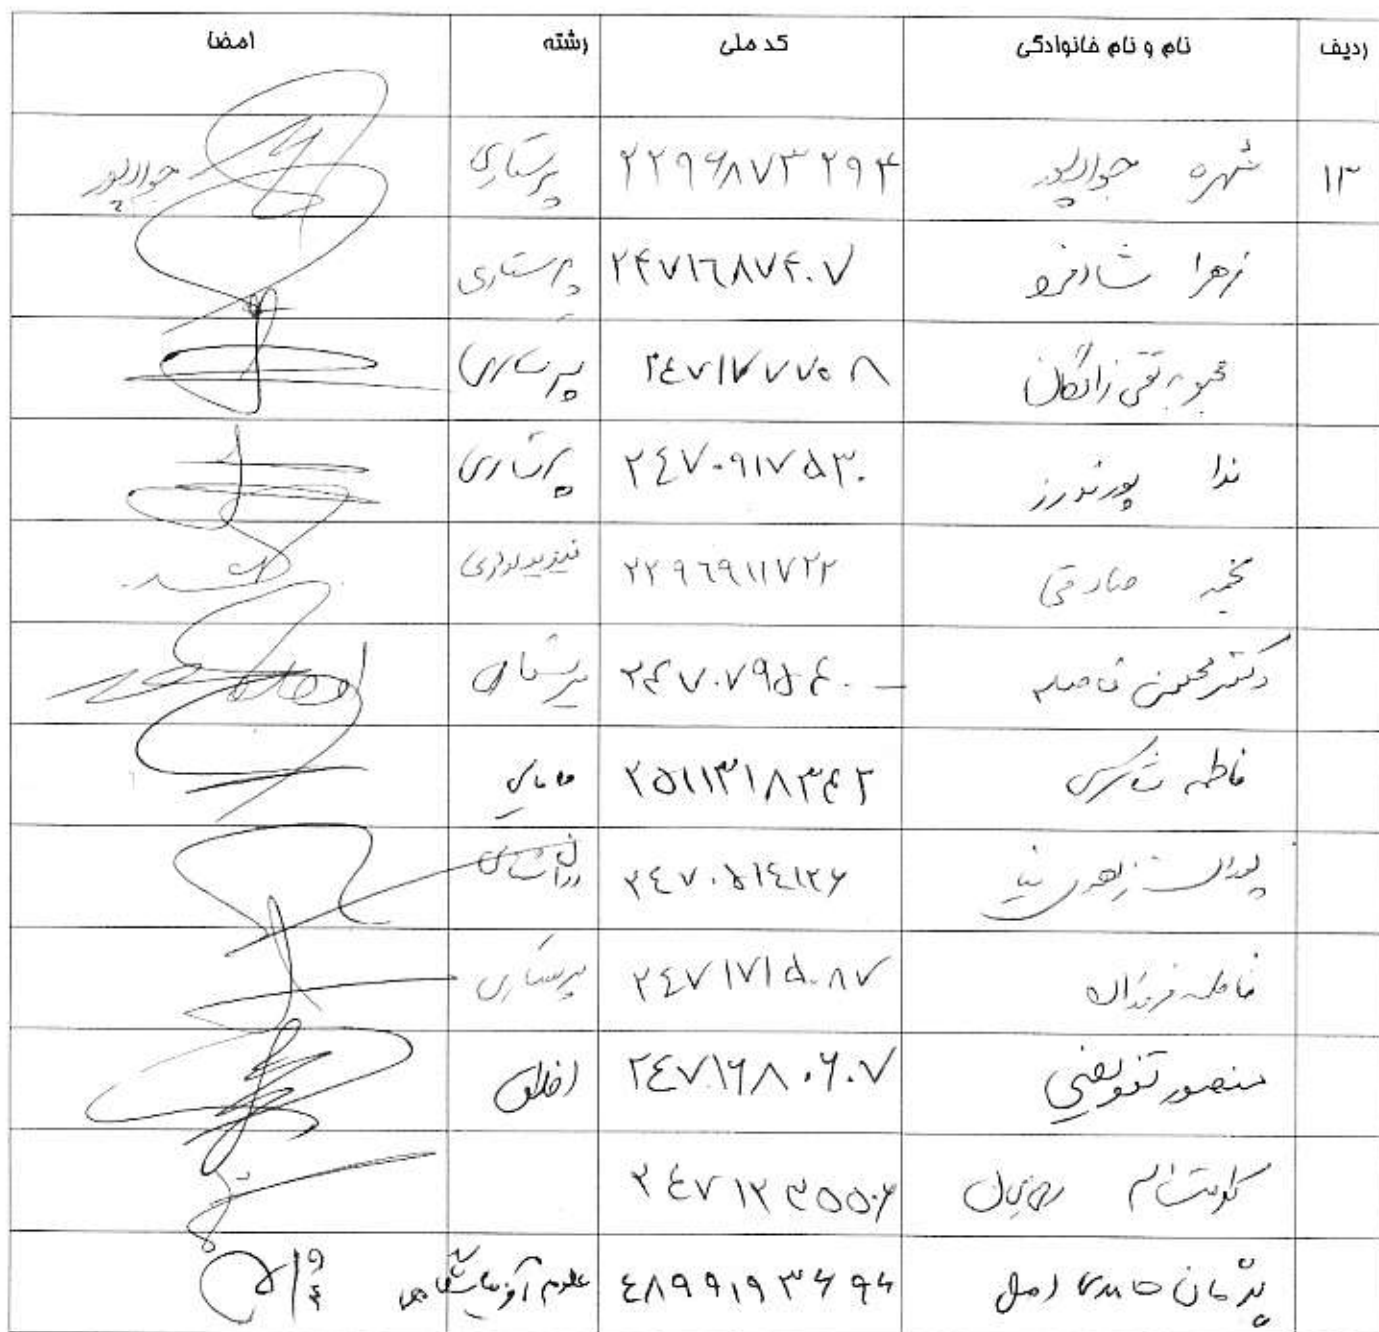 ردیف نام و نام خانوادگی کد ملی رشته امضا
۱۳ شهره جوادپور ۲۲۹۶۸۷۳۲۹۴ پرستاری جوادپور
زهرا شادفرد ۲۴۷۱۶۸۷۴۰۷ پرستاری
محبوبه تقی زادگان ۲۴۷۱۷۷۷۰۸ پرستاری
ندا پورنوروز ۲۴۷۰۹۱۷۵۳۰ پرستاری
نجمه صادقی ۲۲۹۶۹۱۱۷۲۲ فیزیولوژی
دکتر محسن ۲۴۷۰۷۹۵۴۰ پرستار
فاطمه ۲۵۱۱۳۱۸۳۴۲ مامایی
نیا ۲۴۷۰۵۱۴۱۲۶
فاطمه ۲۴۷۱۷۱۵۰۸۷ پرستاری
منصور تفویضی ۲۴۷۱۶۸۰۶۰۷ اخلاق
۲۴۷۱۲۳۵۵۰۶
پژمان حامدی اصل ۴۸۹۹۱۹۳۶۹۶ علوم آزمایشگاهی